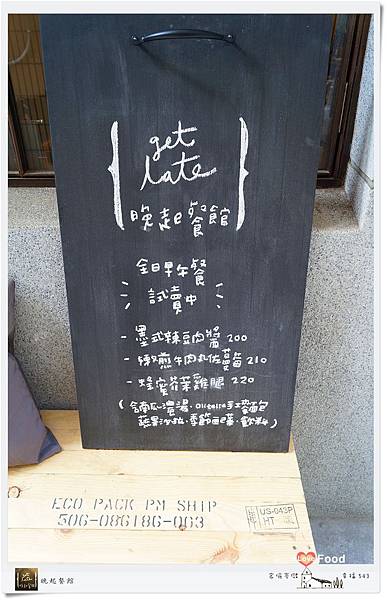 get
late
晚起餐館
全日早午餐
試賣中
- 墨式辣豆肉醬 200
- 嫩煎牛肉丸佐蘑菇 210
- 蜂蜜芥茉雞腿 220
(含南瓜濃湯.手工麵包
蔬果沙拉.季節田蔬.飲料)
ECO PACK PM SHIP
506-086186-063
US-043P
HT
Love Food
晚起餐館
幸福543